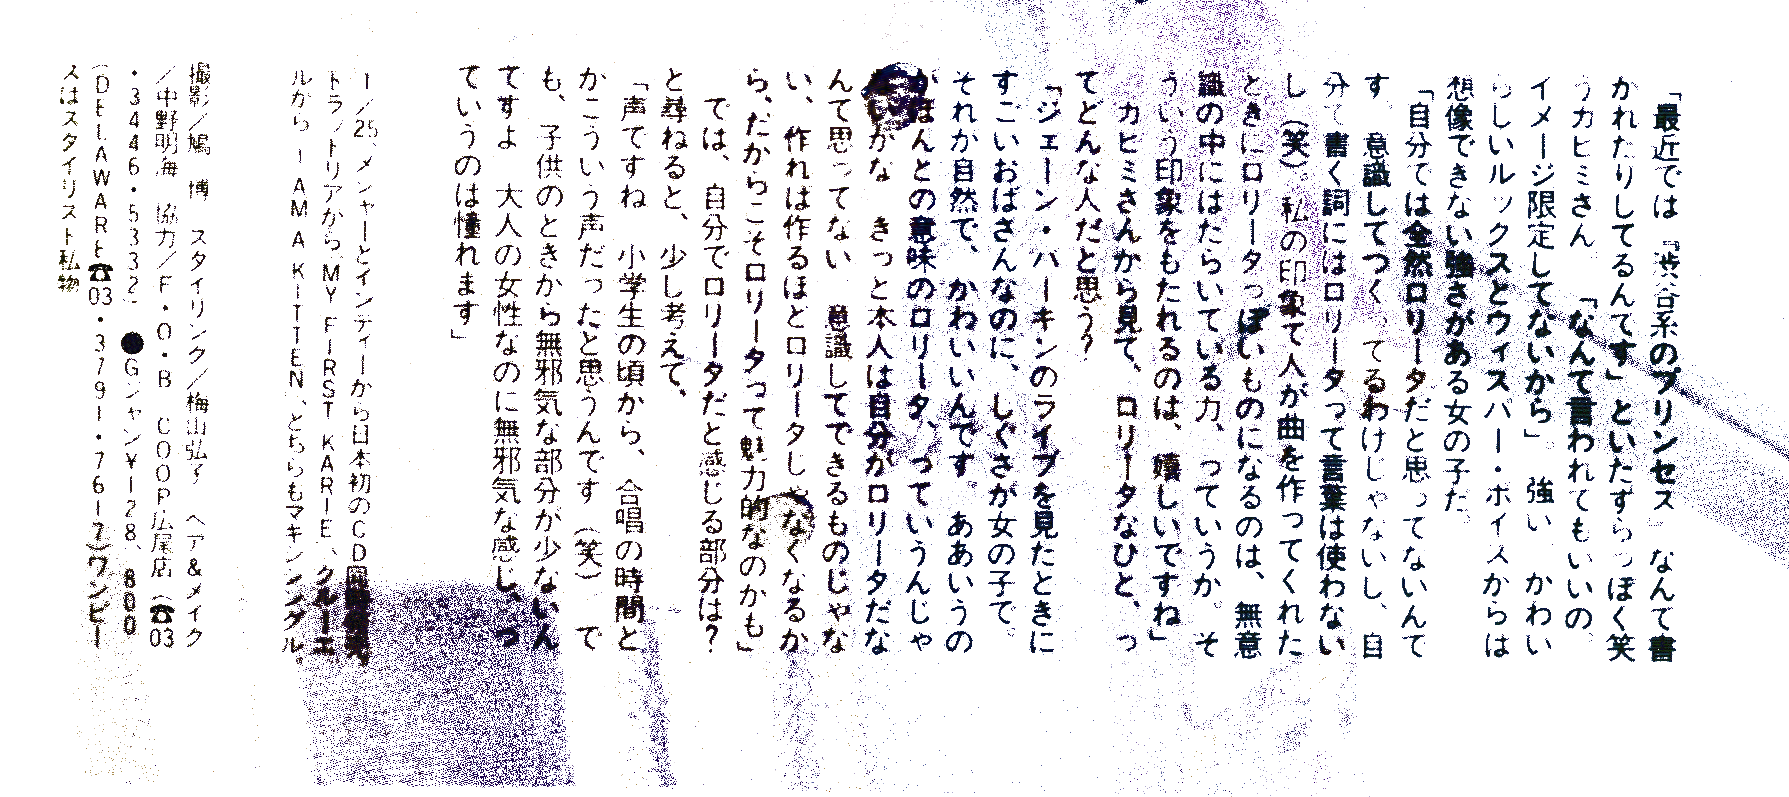 「最近では『渋谷系のプリンセス』なんて書
かれたりしてるんです」といたずらっぽく笑
うカヒミさん。「なんて言われてもいいの。
イメージ限定してないから」。強い、かわい
らしいルックスとウィスパー・ボイスからは
想像できない強さがある女の子だ。
「自分では全然ロリータだと思ってないんで
す。意識してつくってるわけじゃないし、自
分で書く詞にはロリータって言葉は使わない
し（笑）。私の印象で人が曲を作ってくれた
ときにロリータっぽいものになるのは、無意
識の中にはたらいている力、っていうか。そ
ういう印象をもたれるのは、嬉しいですね」
カヒミさんから見て、ロリータなひと、っ
てどんな人だと思う？
「ジェーン・バーキンのライブを見たときに
すごいおばさんなのに、しぐさが女の子で。
それが自然で、かわいいんです。ああいうの
がほんとの意味のロリータ、っていうんじゃ
ないかな。きっと本人は自分がロリータだな
んて思ってない。意識してできるものじゃな
い、作れば作るほどロリータじゃなくなるか
ら、だからこそロリータって魅力的なのかも」
では、自分でロリータだと感じる部分は？
と尋ねると、少し考えて、
「声ですね。小学生の頃から、合唱の時間と
かこういう声だったと思うんです（笑）。で
も、子供のときから無邪気な部分が少ないん
ですよ。大人の女性なのに無邪気な感じ、っ
ていうのは憧れます」
1/25、メジャーとインディーから日本初のCD同時発売。
トラットリアからMY FIRST KARIE、クルーエ
ルからI AM A KITTEN、どちらもマキシシングル。
撮影／鳩 博 スタイリング／梅山弘子 ヘア&メイク
／中野明海 協力／F・O・B COOP広尾店（☎03
・3446・5332） ●Gジャン¥128、800
（DELAWARE☎03・3791・7617）ワンピー
スはスタイリスト私物